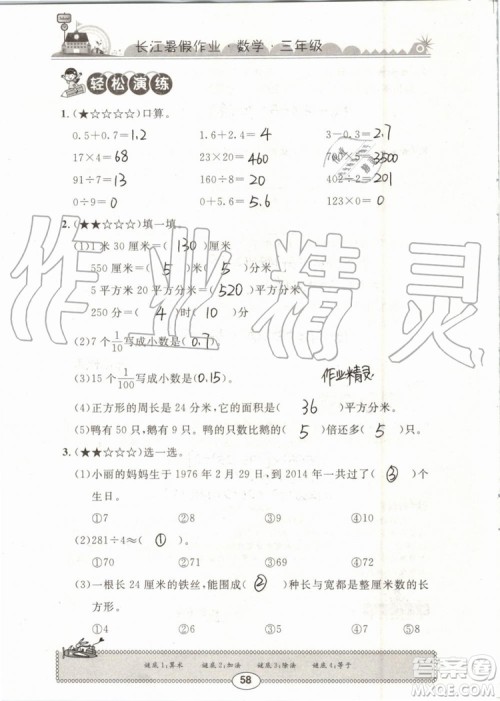 长江暑假作业·数学·三年级
轻松演练
1.(★☆☆☆☆)口算。
0.5+0.7=1.2 1.6+2.4=4 3-0.3=2.7
17×4=68 23×20=460 700×5=3500
91÷7=13 160÷8=20 402÷2=201
0÷9=0 0+5.6=5.6 123×0=0
2.(★★☆☆☆)填一填。
(1)1米30厘米=(130)厘米
550厘米=(5)米(5)分米
5平方米20平方分米=(520)平方分米
250分=(4)时(10)分
(2)7个1/10写成小数是(0.7)。
(3)15个1/100写成小数是(0.15)。 作业精灵
(4)正方形的周长是24分米,它的面积是(36)平方分米。
(5)鸭有50只,鹅有9只。鸭的只数比鹅的(5)倍还多(5)只。
3.(★★☆☆☆)选一选。
(1)小丽的妈妈生于1976年2月29日,到2014年一共过了(③)个
生日。
①7 ②8 ③9 ④10
(2)281÷4≈(①)。
①70 ②71 ③72 ④60
(3)一根长24厘米的铁丝,能围成(②)种长与宽都是整厘米数的长
方形。
①4 ②6 ③8 ④12
谜底1:算术 谜底2:加法 谜底3:除法 谜底4:等于
58
作业精灵
答案圈
MXQE.COM